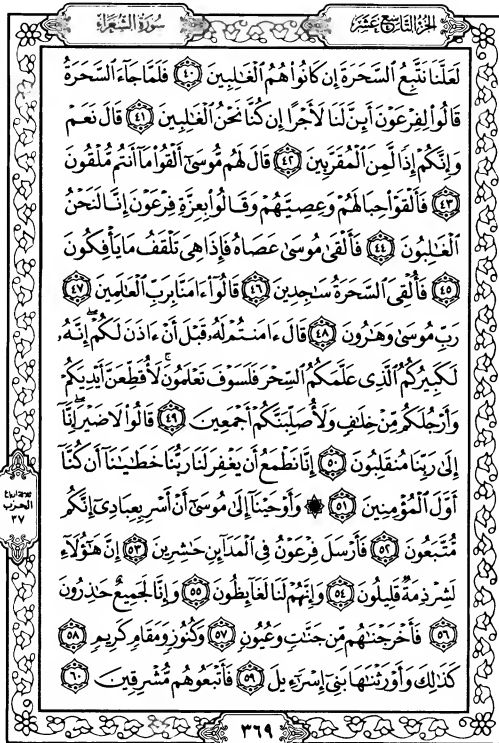 سُورَةُ الشُّعَرَاءِ
الجُزْءُ التَّاسِعُ عَشَرَ
لَعَلَّنَا نَتَّبِعُ السَّحَرَةَ إِن كَانُوا۟ هُمُ ٱلْغَـٰلِبِينَ ٤٠ فَلَمَّا جَآءَ ٱلسَّحَرَةُ
قَالُوا۟ لِفِرْعَوْنَ أَئِنَّ لَنَا لَأَجْرًا إِن كُنَّا نَحْنُ ٱلْغَـٰلِبِينَ ٤١ قَالَ نَعَمْ
وَإِنَّكُمْ إِذًا لَّمِنَ ٱلْمُقَرَّبِينَ ٤٢ قَالَ لَهُم مُّوسَىٰٓ أَلْقُوا۟ مَآ أَنتُم مُّلْقُونَ
٤٣ فَأَلْقَوْا۟ حِبَالَهُمْ وَعِصِيَّهُمْ وَقَالُوا۟ بِعِزَّةِ فِرْعَوْنَ إِنَّا لَنَحْنُ
ٱلْغَـٰلِبُونَ ٤٤ فَأَلْقَىٰ مُوسَىٰ عَصَاهُ فَإِذَا هِىَ تَلْقَفُ مَا يَأْفِكُونَ
٤٥ فَأُلْقِىَ ٱلسَّحَرَةُ سَـٰجِدِينَ ٤٦ قَالُوٓا۟ ءَامَنَّا بِرَبِّ ٱلْعَـٰلَمِينَ ٤٧
رَبِّ مُوسَىٰ وَهَـٰرُونَ ٤٨ قَالَ ءَامَنتُمْ لَهُۥ قَبْلَ أَنْ ءَاذَنَ لَكُمْ ۖ إِنَّهُۥ
لَكَبِيرُكُمُ ٱلَّذِى عَلَّمَكُمُ ٱلسِّحْرَ فَلَسَوْفَ تَعْلَمُونَ ۚ لَأُقَطِّعَنَّ أَيْدِيَكُمْ
وَأَرْجُلَكُم مِّنْ خِلَـٰفٍ وَلَأُصَلِّبَنَّكُمْ أَجْمَعِينَ ٤٩ قَالُوا۟ لَا ضَيْرَ ۖ إِنَّآ
إِلَىٰ رَبِّنَا مُنقَلِبُونَ ٥٠ إِنَّا نَطْمَعُ أَن يَغْفِرَ لَنَا رَبُّنَا خَطَـٰيَـٰنَآ أَن كُنَّآ
أَوَّلَ ٱلْمُؤْمِنِينَ ٥١ ۞ وَأَوْحَيْنَآ إِلَىٰ مُوسَىٰٓ أَنْ أَسْرِ بِعِبَادِىٓ إِنَّكُم
مُّتَّبَعُونَ ٥٢ فَأَرْسَلَ فِرْعَوْنُ فِى ٱلْمَدَآئِنِ حَـٰشِرِينَ ٥٣ إِنَّ هَـٰٓؤُلَآءِ
لَشِرْذِمَةٌ قَلِيلُونَ ٥٤ وَإِنَّهُمْ لَنَا لَغَآئِظُونَ ٥٥ وَإِنَّا لَجَمِيعٌ حَـٰذِرُونَ
٥٦ فَأَخْرَجْنَـٰهُم مِّن جَنَّـٰتٍ وَعُيُونٍ ٥٧ وَكُنُوزٍ وَمَقَامٍ كَرِيمٍ ٥٨
كَذَٰلِكَ وَأَوْرَثْنَـٰهَا بَنِىٓ إِسْرَٰٓءِيلَ ٥٩ فَأَتْبَعُوهُم مُّشْرِقِينَ ٦٠
ثلاثة أرباع
الحزب
٣٧
٣٦٩